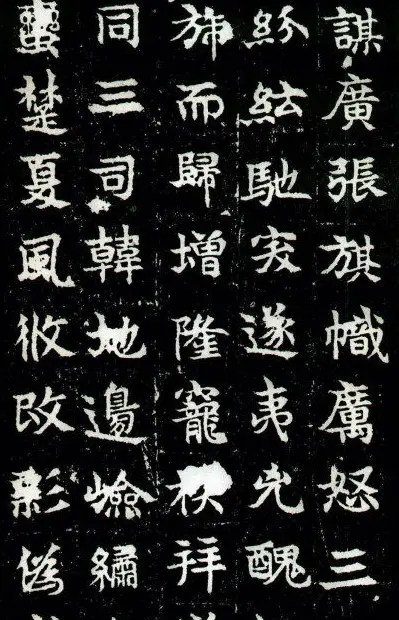 謀廣張旗幟厲怒三
紛紜馳突遂夷兇醜
旆而歸增隆寵秩拜
同三司韓地邊嶮繡
蠻楚夏風攸改僞